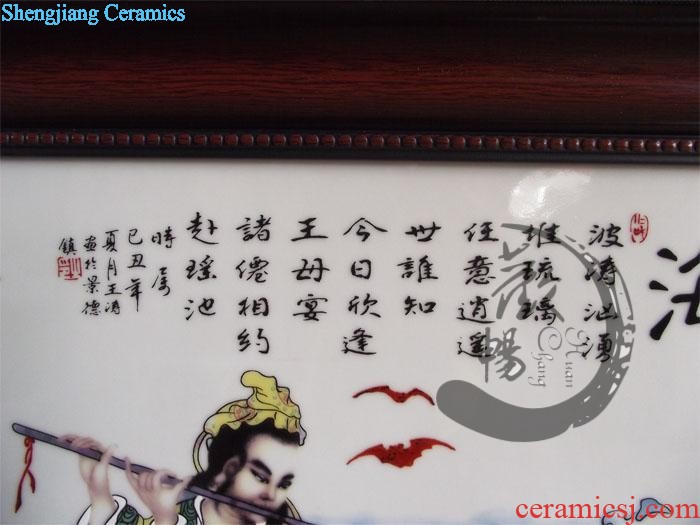 Shengjiang Ceramics
海
波涛汹湧
堆琉璃
任意逍遥
世誰知
今日欣逢
王母宴
諸僊相約
赴瑶池
時属
己丑年
夏月王涛
画於景德
鎮
Xuan
Chang
暢
ceramicsj.com